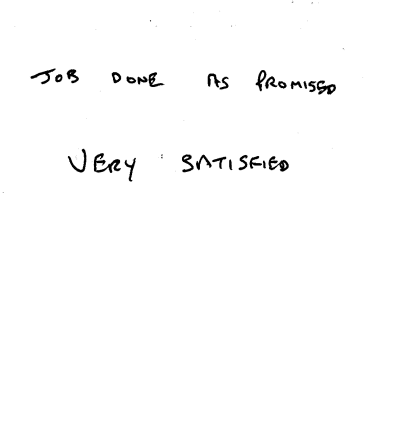 JOB DONE AS PROMISED
VERY SATISFIED